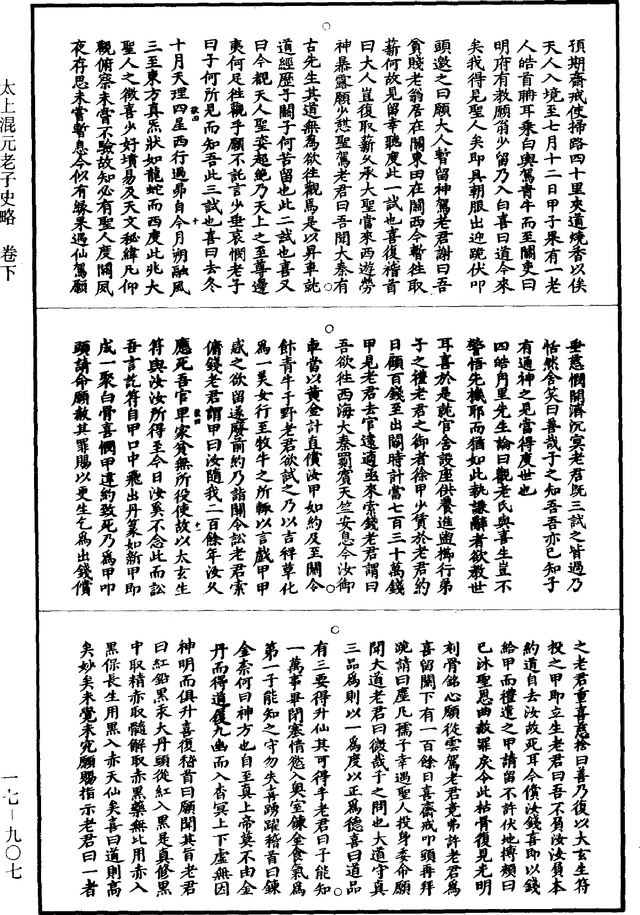 太上混元老子史略　卷下
一七－九〇七
預期齋戒使掃路四十里夾道燒香以俟
天人入境至七月十二日甲子果有一老
人皓首聃耳乘白輿駕青牛而至關吏曰
明府有教願翁少留乃入白喜曰道今來
矣我得見聖人矣即具朝服出迎跪伏叩
頭邀之曰願大人暫留神駕老君謝曰吾
貧賤老翁居在關東田在關西今暫往取
薪何故見留幸聽度此一試也喜復稽首
曰大人豈復取薪久承大聖當來西遊勞
神暴露願少憩聖駕老君曰吾聞大秦有
古先生其道無為欲往觀焉是以昇車就
道經歷于關子何苦留也此二試也喜又
曰今覩天人聖姿超絶乃天上之至尊邊
夷何足往觀乎願不託言少垂哀憫老子
曰子何所見而知吾此三試也喜曰去冬
十月天理四星西行過昴自今月朔融風
三至東方真炁狀如龍蛇而西度此兆大
聖人之徵喜少好墳易及天文秘緯凡仰
觀俯察未嘗不驗故知必有聖人度關夙
夜存思未嘗暫息今似有緣果遇仙駕願
垂慈憫開濟沉冥老君既三試之皆過乃
恬然含笑曰善哉子之知吾吾亦已知子
有通神之見當得度世也
四皓角里先生論曰觀老氏與喜生豈不
警悟先機耶而猶如此執謙辭者欲教世
耳喜於是就官舍設座供養進盥櫛行弟
子之禮老君之御者徐甲少賃於老君約
日顧百錢至出關時計當七百三十萬錢
甲見老君去官遠適亟來索錢老君謂曰
吾欲往西海大秦罽賓天竺安息令汝御
車當以黃金計直償汝甲如約及至關令
飰青牛于野老君欲試之乃以吉祥草化
為一美女行至牧牛之所輒以言戲甲甲
惑之欲留遂廢前約乃詣關令訟老君索
傭錢老君謂甲曰汝隨我二百餘年汝久
應死吾官甲家貧無所役使故以太玄生
符與汝汝所得至今日汝奚不念此而訟
吾言訖符自甲口中飛出丹篆如新甲即
成一聚白骨喜憫甲違約致死乃為甲叩
頭請命願赦其罪賜以更生乞為出錢償
之老君重喜慈捨曰善乃復以太玄生符
投之甲即立生老君曰吾不負汝汝負本
約道自去汝故死耳今償汝錢喜即以錢
給甲而禮遣之甲請留不許伏地搏頰曰
已沐聖恩曲赦罪戾令此枯骨復見光明
刻骨銘心願從雲駕老君竟弗許老君為
喜留關下有一百餘日喜齋戒叩頭再拜
跪請曰塵凡孺子幸遇聖人投身委命願
聞大道老君曰微哉子之問也大道守真
三品為則以一為度以正為德喜曰道品
有三要得升仙其可得乎老君曰子能知
一萬事畢閉塞情慾入奧室鍊金食氣為
第一子能知之守勿失喜踴躍稽首曰鍊
金奈何曰神方也自至真上帝莫不由金
丹而得道復九幽而入杳冥上下虛無因
神明而俱升喜復稽首曰願聞其旨老君
曰紅鉛黑汞大丹頭從紅入黑是真修黑
中取精赤取髓解取赤黑藥無比用赤入
黑保長生用黑入赤天仙矣喜曰道則高
矣妙矣未覺未究願賜指示老君曰一者